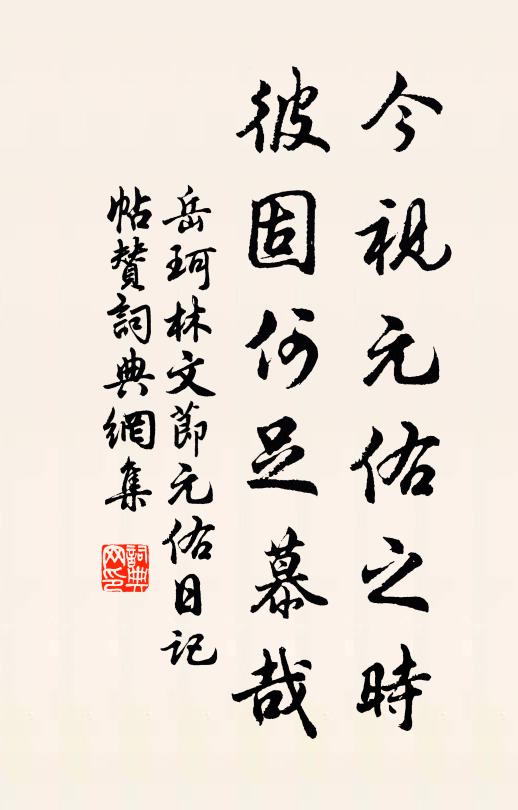 今視元佑之時
彼固何足慕哉
岳珂林文節元佑日記
帖贊詞典網集
詞典网印